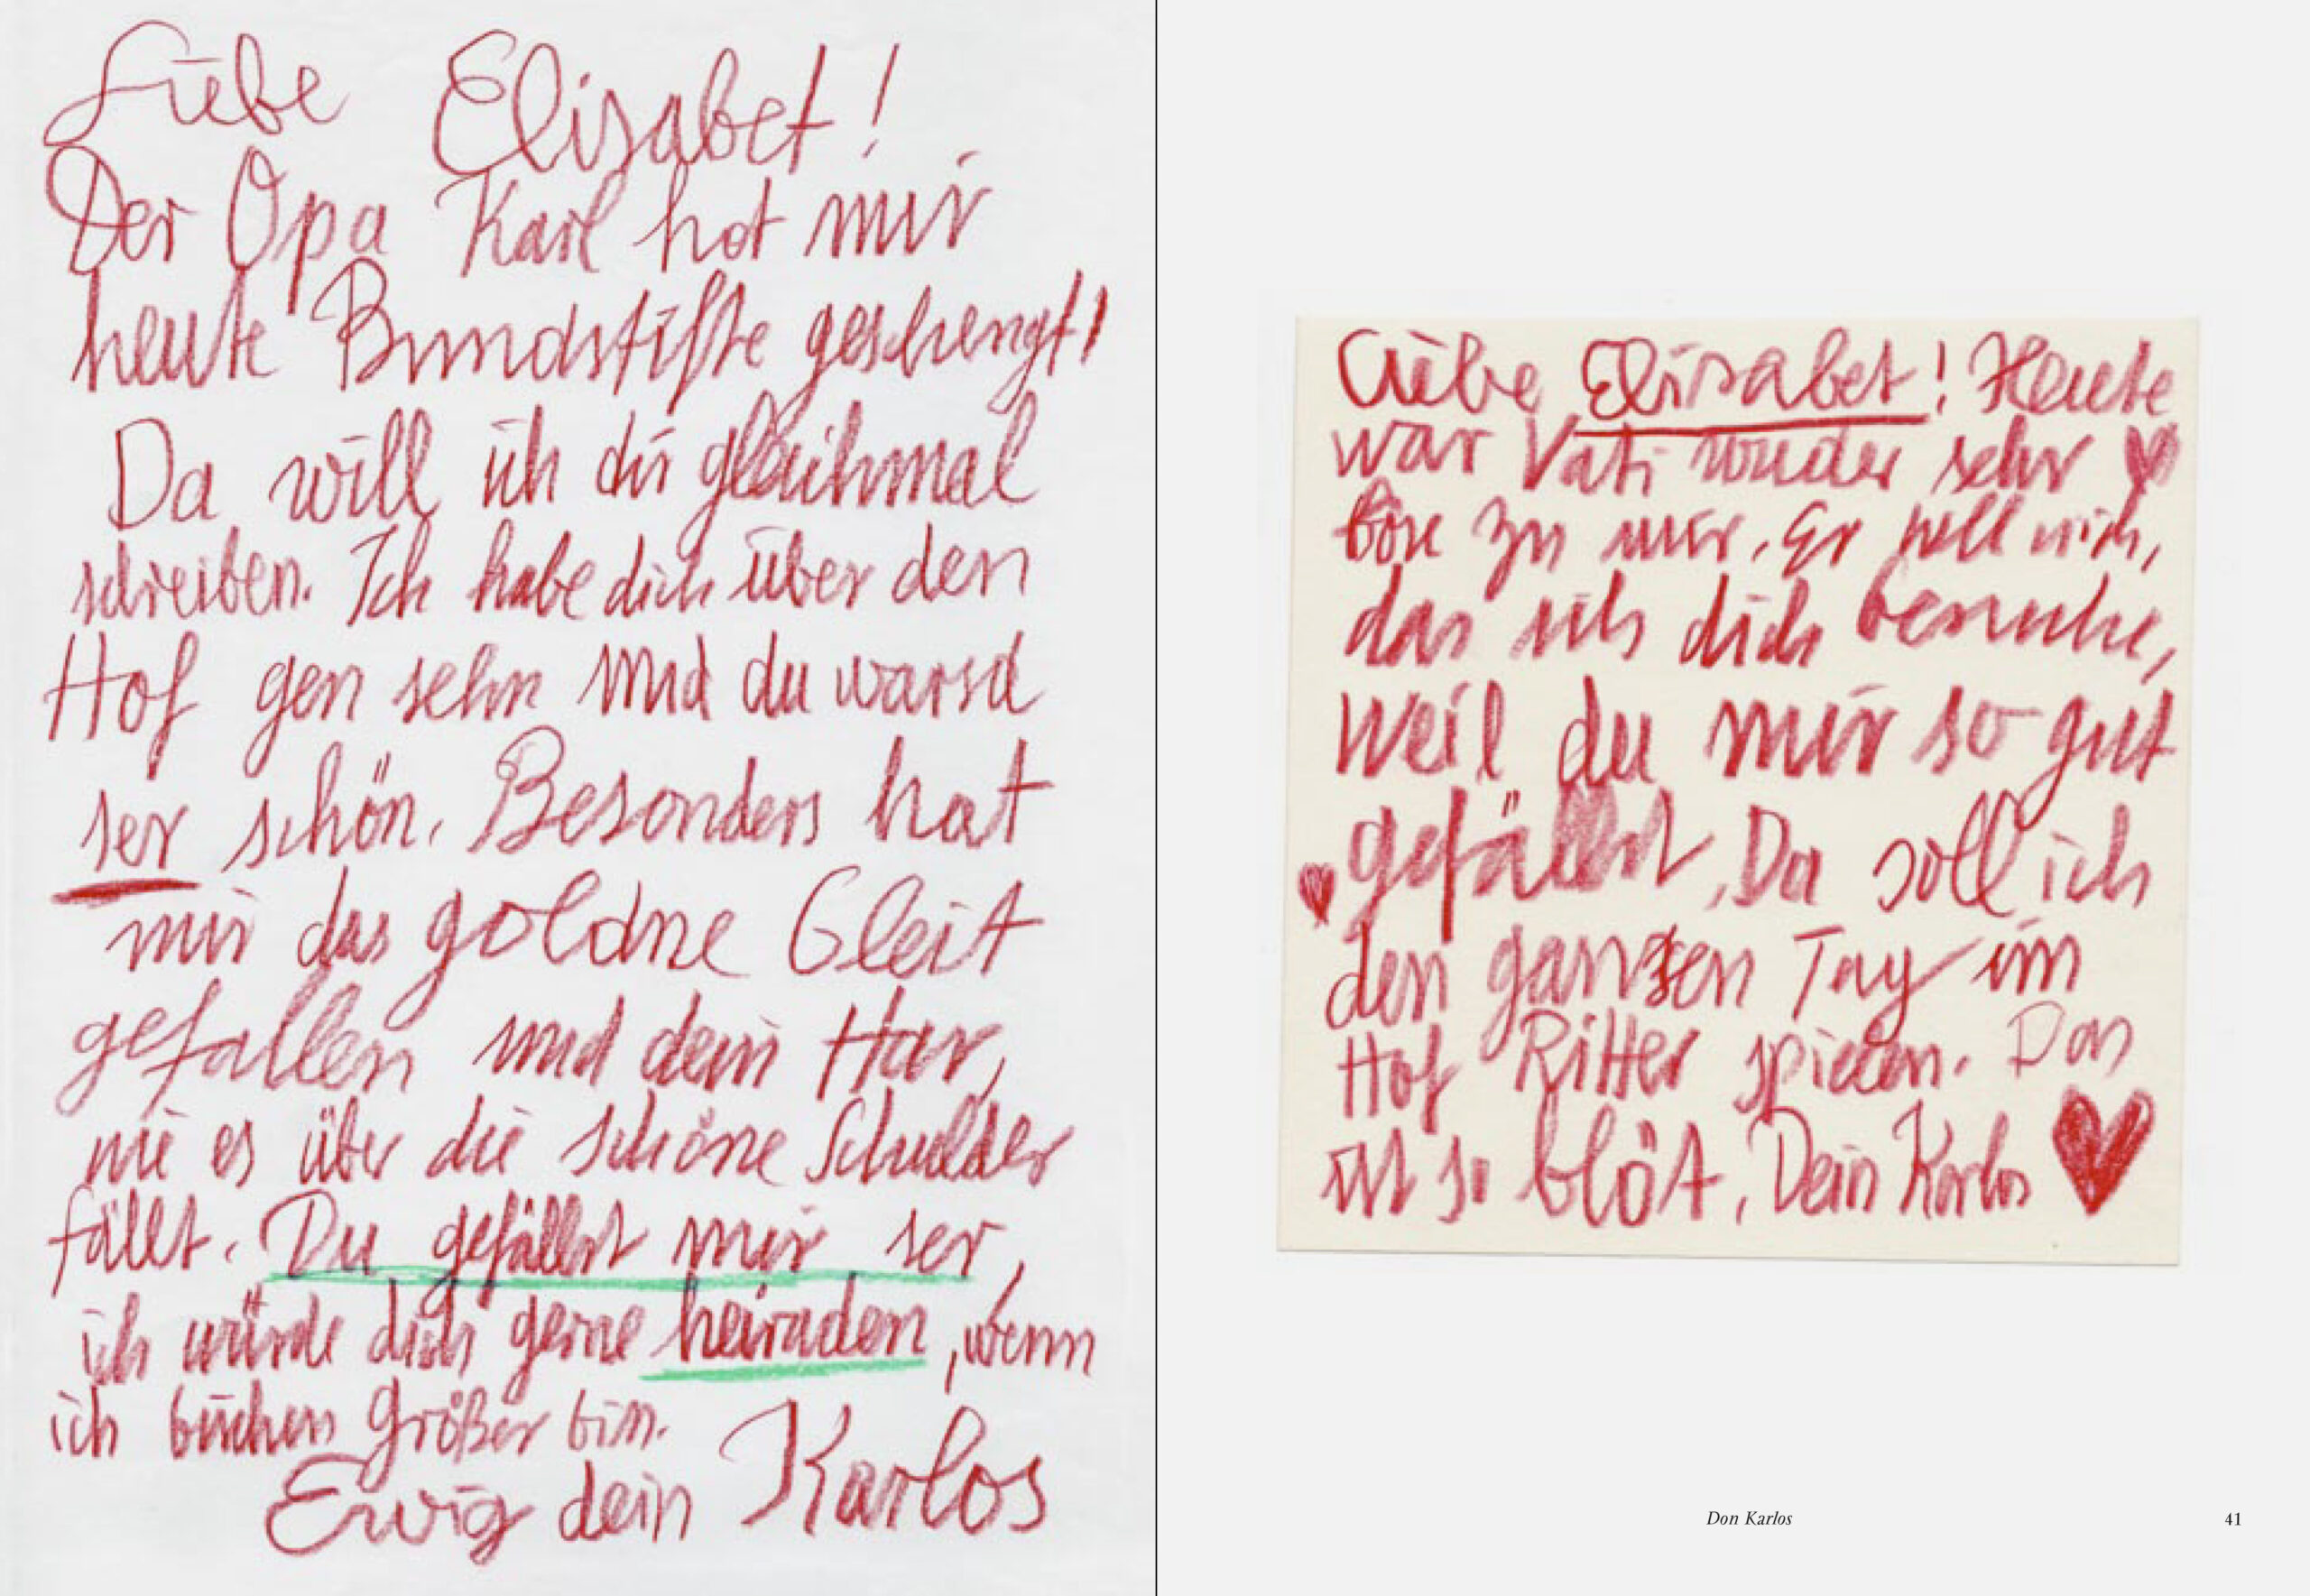 Liebe Elisabet!
Der Opa Karl hat mir
heute Bundstifte geschengt!
Da will ich dir gleichmal
schreiben. Ich habe dich über den
Hof gen sehn und du warsd
ser schön. Besonders hat
mir das goldne Gleit
gefallen und dein Har,
wie es über die schöne Schulder
fällt. Du gefällst mir ser,
ich würde dich gerne heiraden, wenn
ich bischen größer bin.
Ewig dein Karlos
Liebe Elisabet! Heute
war Vati wieder sehr
böse zu mir. Er will nich,
das ich dich besuche,
weil du mir so gut
gefällst. Da soll ich
den ganzen Tag im
Hof Ritter spielen. Das
ist so blöt. Dein Karlos
Don Karlos
41